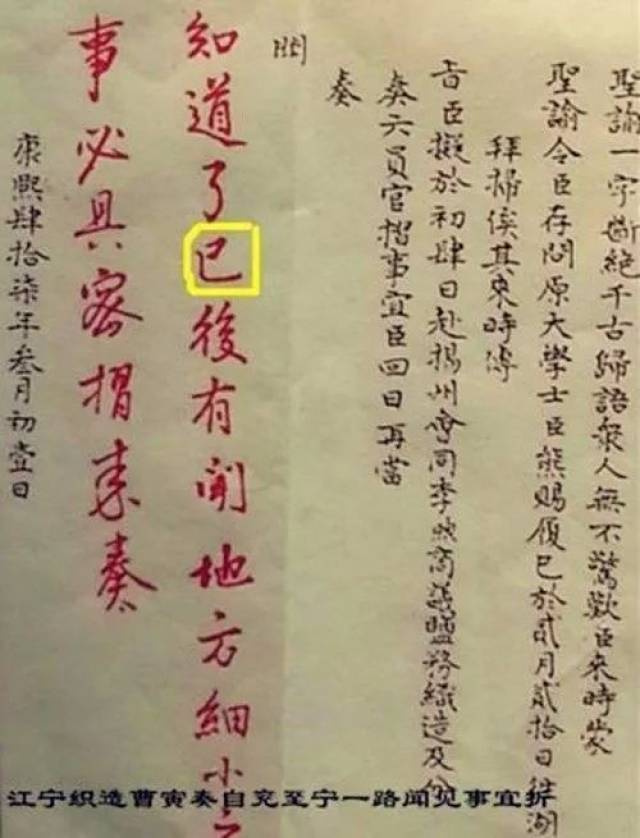 聖諭一字斷絕千古歸語衆人無不驚歎臣來時蒙
聖諭令臣存問原大學士臣熊賜履已於貳月貳拾日往湖
拜掃俟其來時傳
旨臣擬於初肆日赴揚州會同李煦商議鹽務織造及
六員官摺事宜臣回日再當
奏
知道了已後有聞地方細小之
事必具密摺來奏
康熙肆拾柒年叁月初壹日
江宁织造曹寅奏自兖至宁一路闻见事宜折